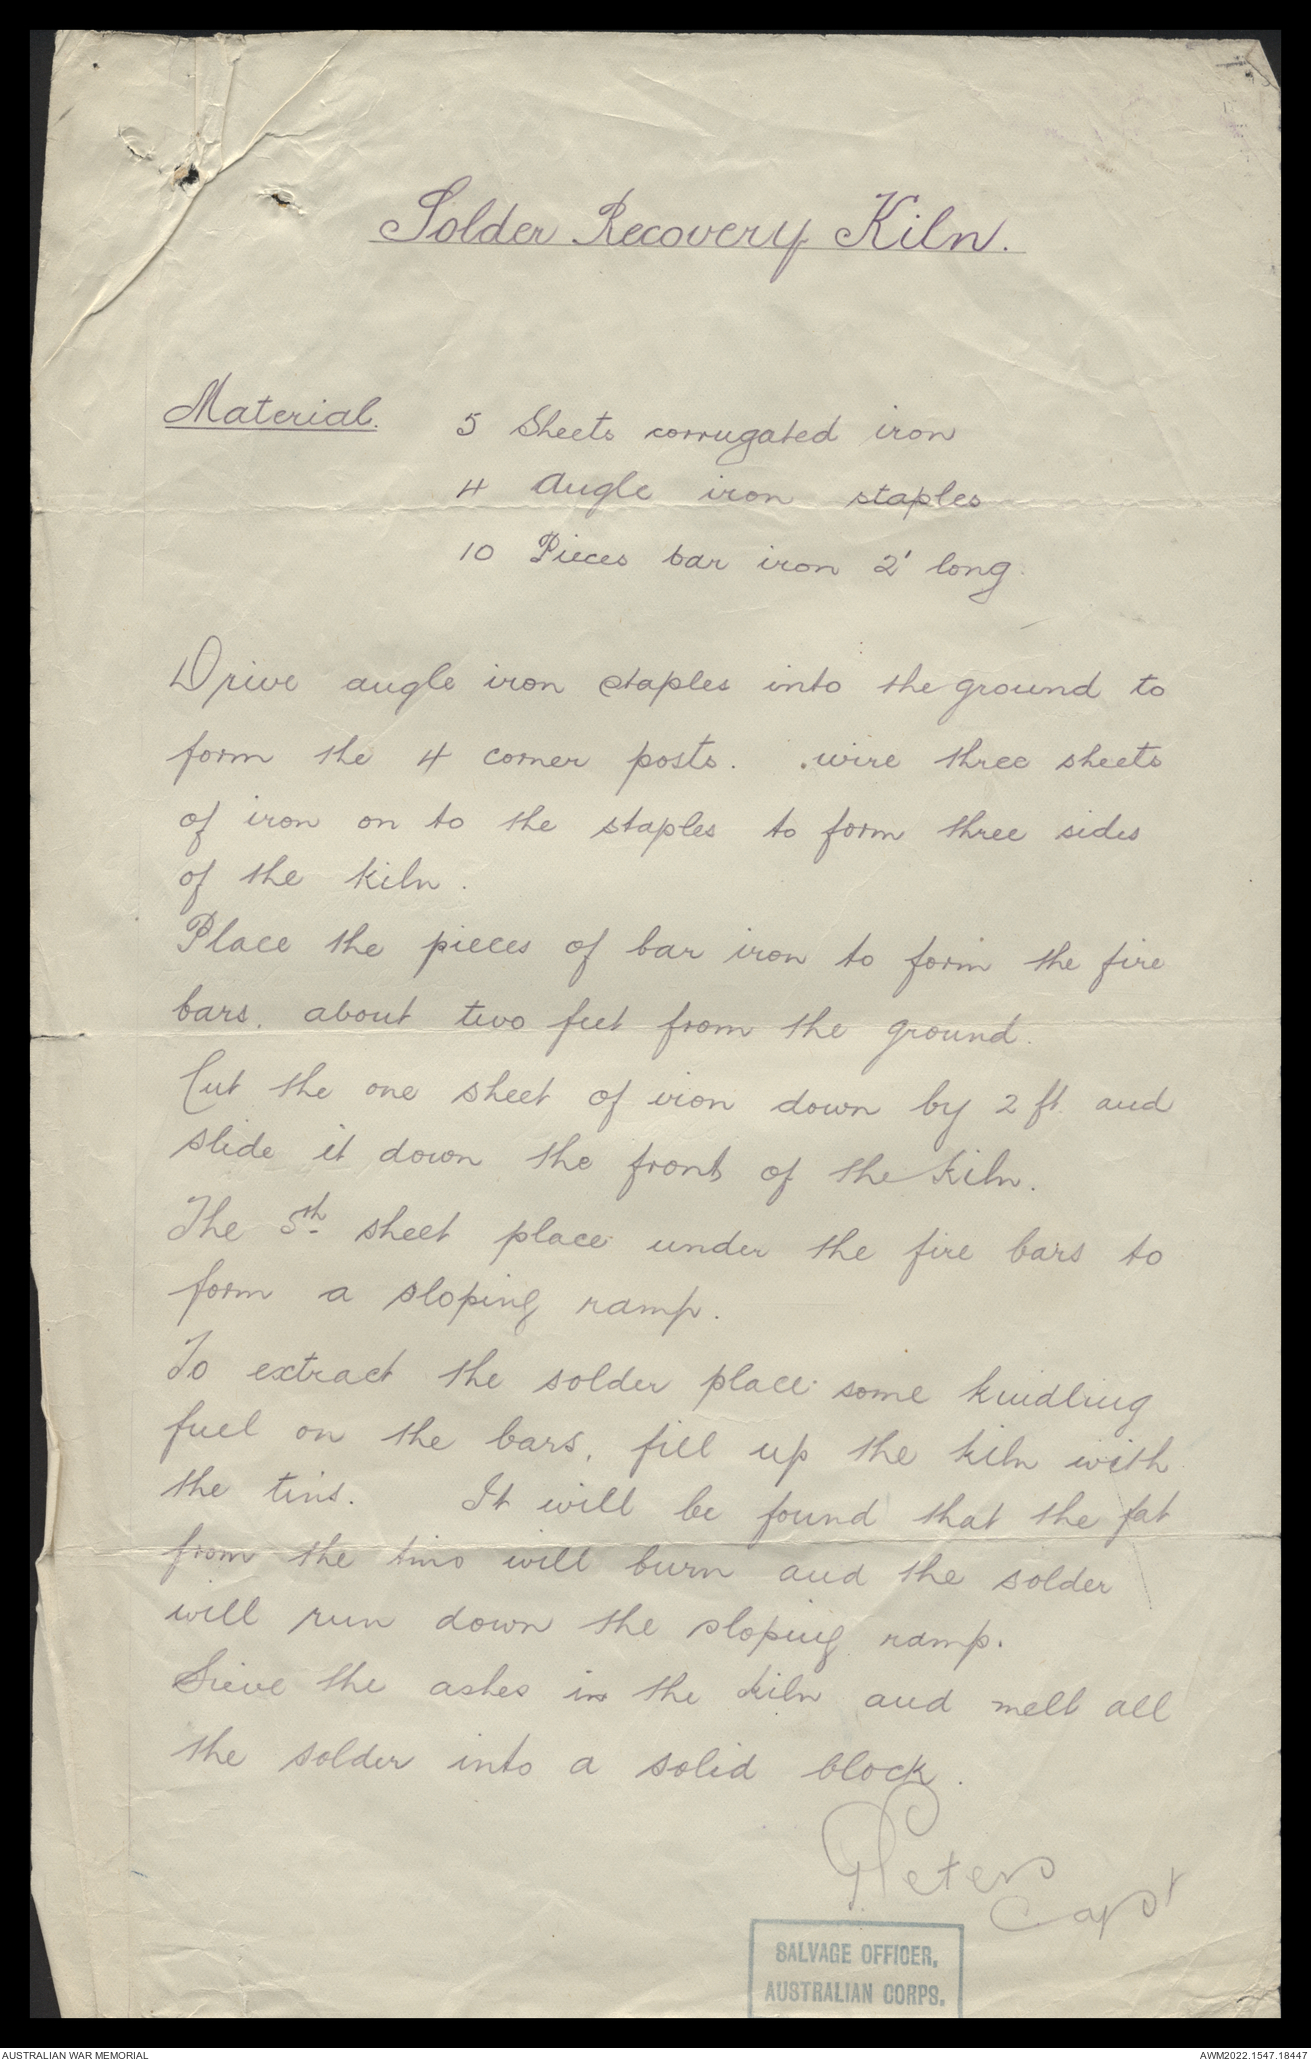 Solder Recovery Kiln.
Material. 5 Sheets corrugated iron
4 Angle iron staples
10 Pieces bar iron 2' long.
Drive angle iron staples into the ground to
form the 4 corner posts. wire three sheets
of iron on to the staples to form three sides
of the kiln.
Place the pieces of bar iron to form the fire
bars, about two feet from the ground.
Cut the one sheet of iron down by 2 ft and
slide it down the front of the kiln.
The 5th sheet place under the fire bars to
form a sloping ramp.
To extract the solder place some kindling
fuel on the bars, fill up the kiln with
the tins. It will be found that the fat
from the tins will burn and the solder
will run down the sloping ramp.
Sieve the ashes in the kiln and melt all
the solder into a solid block.
Peters
Capt
SALVAGE OFFICER,
AUSTRALIAN CORPS.
AUSTRALIAN WAR MEMORIAL AWM2022.1547.18447